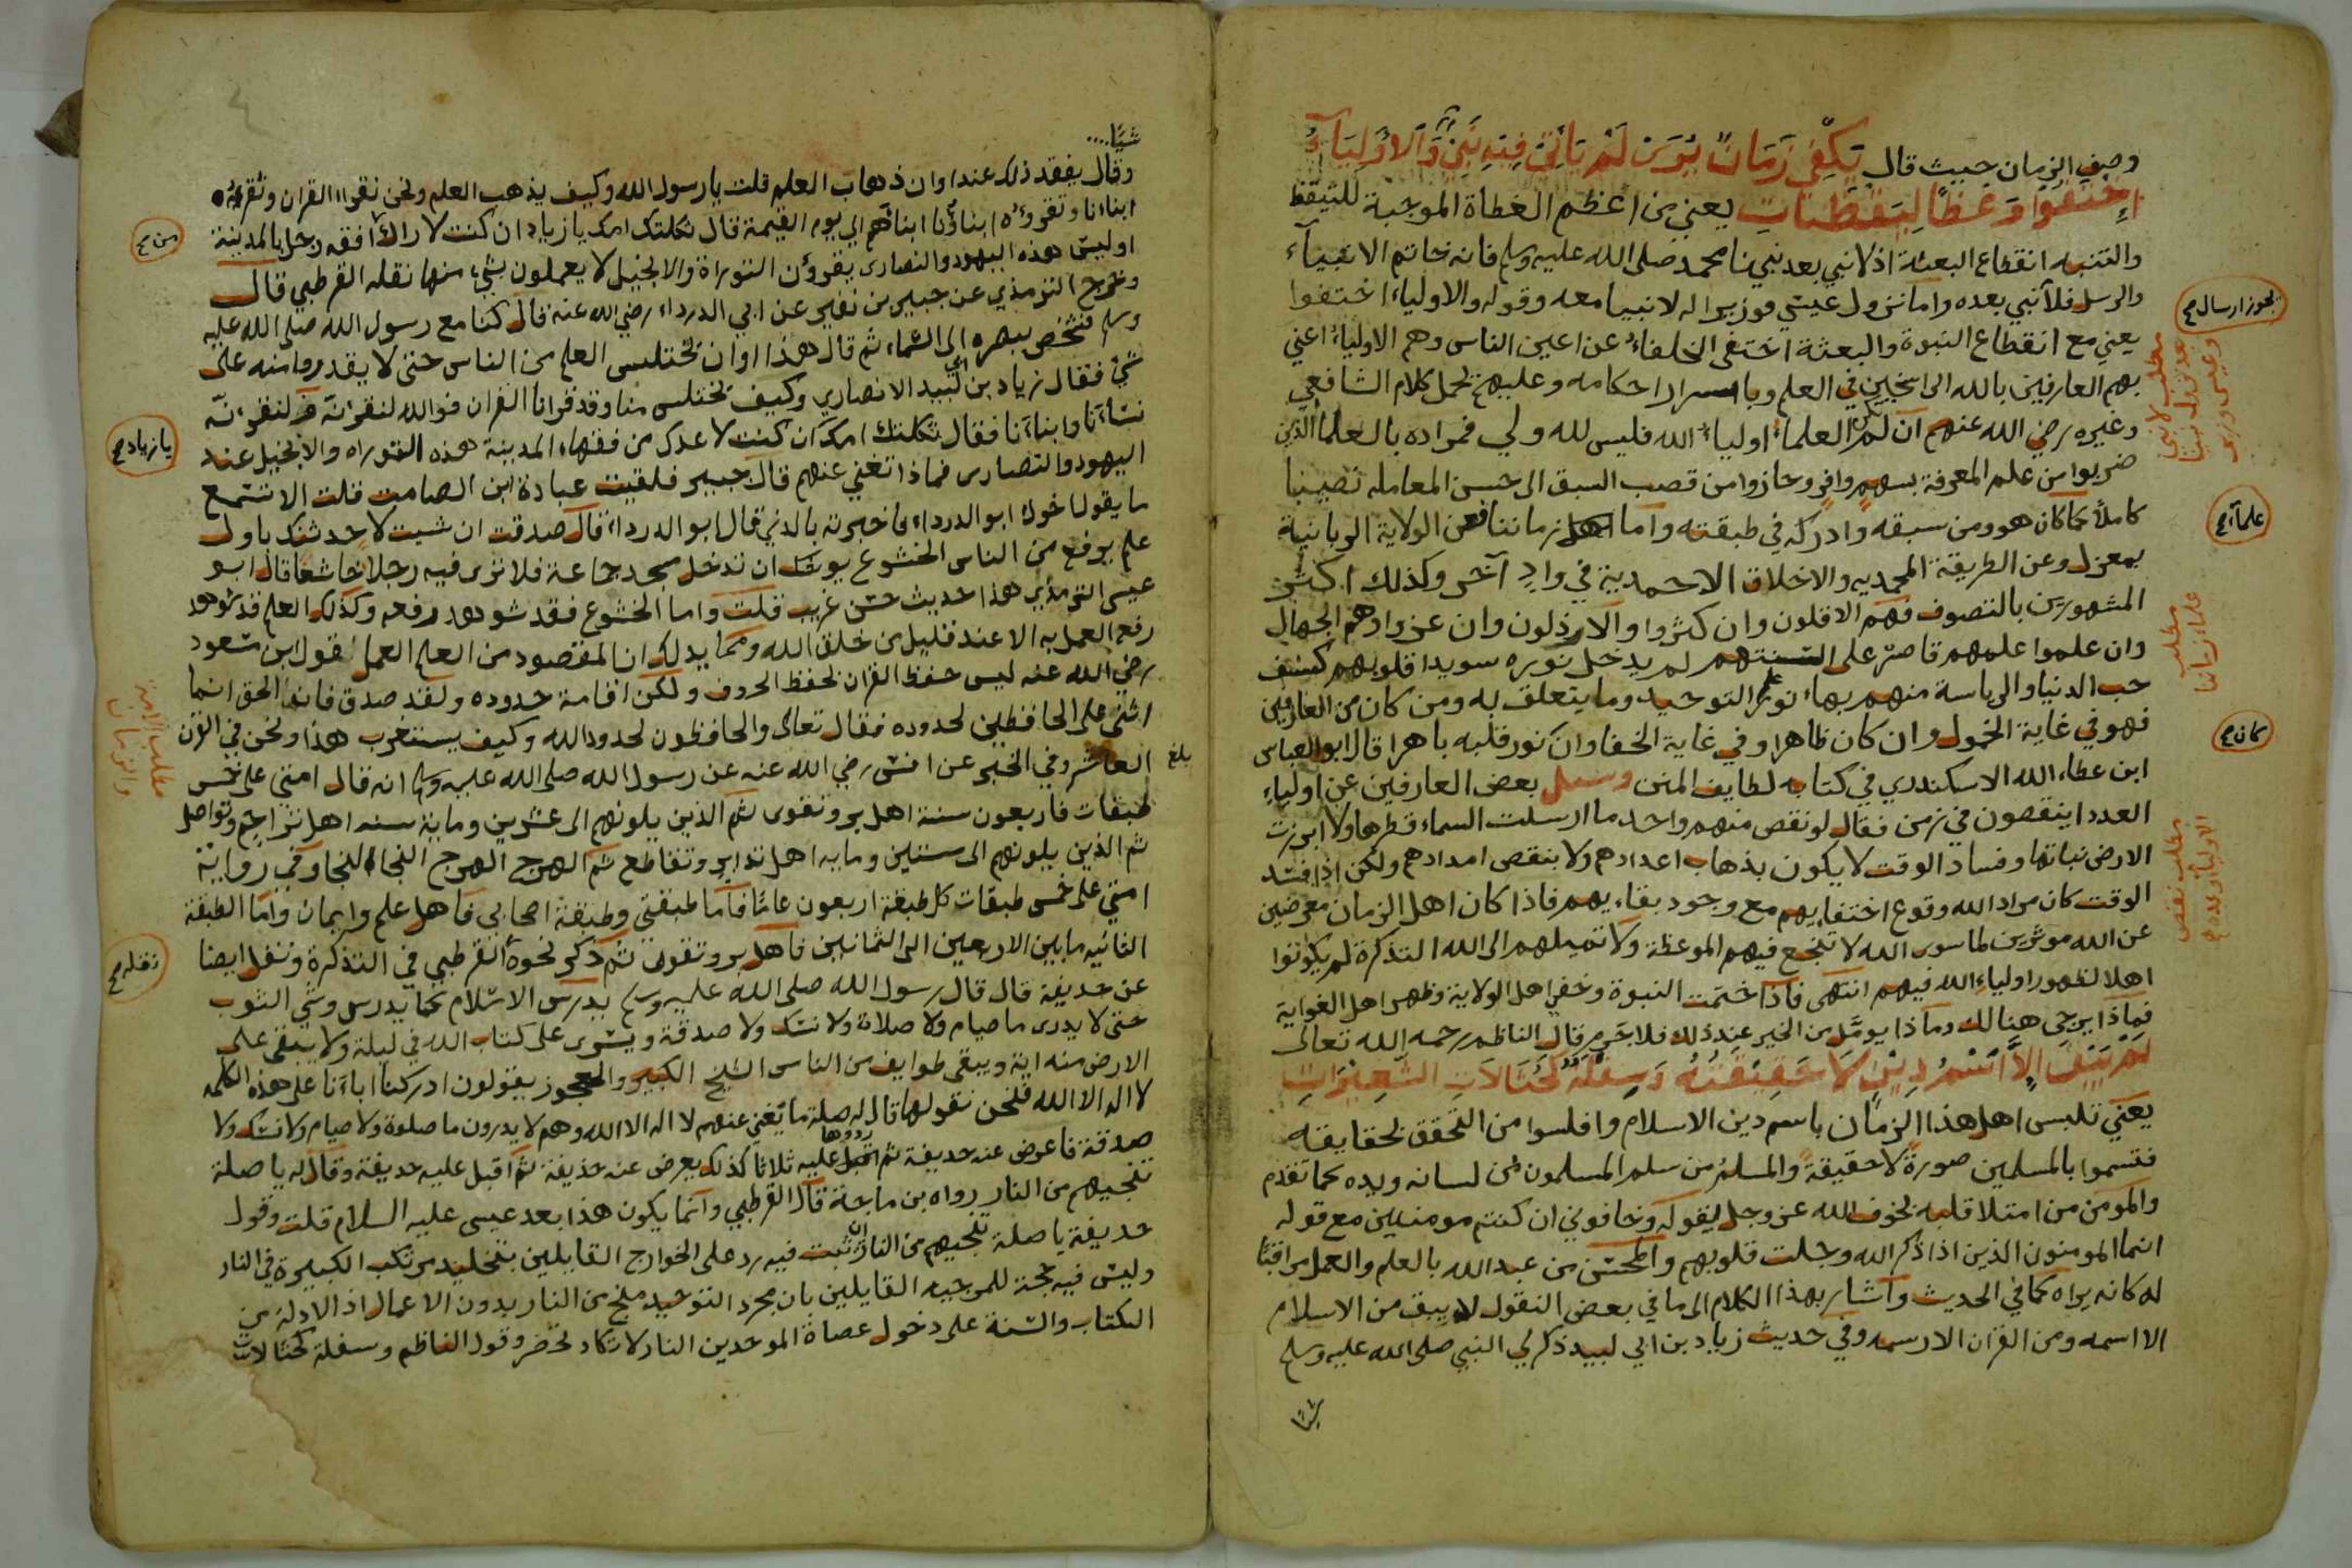 وصف الزمان حيث قال يكفي زمان بؤس لم يأتي فيه نبي والاولياء
اختفوا وعظا ليقظتنات يعني من اعظم العظاة الموجبة للتيقظ
والتنبه انقطاع البعثة اذ لا نبي بعد نبينا محمد صلى الله عليه وسلم فانه خاتم الانبياء
والرسل فلا نبي بعده واما نزول عيسى فوزير اله لا نبيا معه وقوله والاولياء اختفوا
يعني مع انقطاع النبوة والبعثة اختفى الخلفاء عن اعين الناس وهم الاولياء اعني
بهم العارفين بالله الراسخين في العلم وباسرار احكامه وعليهم يحمل كلام الشافعي
وغيره رضي الله عنهم ان لم يكن العلماء اولياء الله فليس لله ولي فمراده بالعلما الذين
ضربوا من علم المعرفة بسهم وافر وحازوا من قصب السبق الى حسن المعامله نصيبا
كاملا كما كان هو ومن سبقه وادركه في طبقته واما اهل زماننا فعن الولاية الربانية
بمعزل وعن الطريقة المحمديه والاخلاق الاحمدية في واد آخر وكذلك اكثر
المشهورين بالتصوف فهم الاقلون وان كثروا والارذلون وان عزوا وهم الجهال
وان علموا علمهم قاصر على السنتهم لم يدخل نوره سويدا قلوبهم كسف
حب الدنيا والرياسة منهم بهاء نور علم التوحيد وما يتعلق به ومن كان من العارفين
فهو في غاية الخمول وان كان ظاهرا وفي غاية الخفا وان كان نور قلبه باهرا قال ابو العباس
ابن عطاء الله الاسكندري في كتابه لطايف المنن وسئل بعض العارفين عن اولياء
العدد اينقصون في زمن فقال لو نقص منهم واحد ما ارسلت السماء قطرها ولا ابرزت
الارض نباتها وفساد الوقت لا يكون بذهاب اعدادهم ولا بنقص امدادهم ولكن اذا فسد
الوقت كان مراد الله وقوع اختفايهم مع وجود بقاءيهم فاذا كان اهل الزمان معرضين
عن الله موثرين لما سوى الله لا تنجع فيهم الموعظة ولا تميلهم الى الله التذكرة لم يكونوا
اهلا لظهور اولياء الله فيهم انتهى فاذا ختمت النبوة وخفي اهل الولاية وظهر اهل الغواية
فماذا يرجى هنالك وماذا يومل من الخير عند ذلك فلا جرم قال الناظم رحمه الله تعالى
لم يبق الا اسم دين لا حقيقته وسفلة كحثالات الشعيرات
يعني تلبس اهل هذا الزمان باسم دين الاسلام وافلسوا من التحقق بحقايقه
فتسموا بالمسلمين صورة لا حقيقة والمسلم من سلم المسلمون من لسانه ويده كما تقدم
والمومن من امتلا قلبه بخوف الله عز وجل لقوله وخافوني ان كنتم مومنين مع قوله
انما المومنون الذين اذا ذكر الله وجلت قلوبهم والمحسن من عبد الله بالعلم والعمل مراقبا
له كانه يراه كما في الحديث واشار بهذا الكلام الى ما في بعض النقول لا يبق من الاسلام
الا اسمه ومن القران الا رسمه وفي حديث زياد بن ابي لبيد ذكر لي النبي صلى الله عليه وسلم
شيا
يجوز ارسال صح
مطلب لا نبي
علماء صح
مطلب
علماء زماننا
كان صح
مطلب نقص
شيا
وقال يفقد ذلك عند اوان ذهاب العلم قلت يا رسول الله وكيف يذهب العلم ونحن نقراء القران ونقرئه
ابناءنا وتقروه ابناؤنا ابناءهم الى يوم القيمة قال ثكلتك امك يا زياد ان كنت لا راك افقه رجل بالمدينة
اوليس هذه اليهود والنصارى يقرؤن التوراة والانجيل لا يعملون بشيء منها نقله القرطبي قال
وخرج الترمذي عن جبير بن نفير عن ابي الدرداء رضي الله عنه قال كنا مع رسول الله صلى الله عليه
وسلم فشخص ببصره الى السماء ثم قال هذا اوان تختلس العلم من الناس حتى لا يقدروا منه على
شيء فقال زياد بن لبيد الانصاري وكيف تختلس منا وقد قرانا القران فوالله لنقرئنه ولنقرئنه
نساءنا وابناءنا فقال ثكلتك امك ان كنت لاعدك من فقهاء المدينة هذه التوراه والانجيل عند
اليهود والنصارى فماذا تغني عنهم قال جبير فلقيت عبادة ابن الصامت قلت الا تسمع
ما يقول اخوك ابو الدرداء فاخبرته بالذي قال ابو الدرداء قال صدقت ان شيت لاحدثنك باول
علم يرفع من الناس الخشوع يوشك ان تدخل مسجد جماعة فلا ترى فيه رجلا خاشعا قال ابو
عيسى الترمذي هذا حديث حسن غريب قلت واما الخشوع فقد شوهد رفعه وكذلك العلم قد شوهد
رفع العمل به الا عند قليل من خلق الله ومما يدلك ان المقصود من العلم العمل لقول ابن مسعود
رضي الله عنه ليس حفظ القران بحفظ الحروف ولكن اقامة حدوده ولقد صدق فان الحق انما
اثنى على الحافظين لحدوده فقال تعالى والحافظون لحدود الله وكيف يستغرب هذا ونحن في القرن
العاشر وفي الخبر عن انس رضي الله عنه عن رسول الله صلى الله عليه وسلم انه قال امتي على خمس
طبقات فاربعون سنة اهل بر وتقوى ثم الذين يلونهم الى عشرين وماية سنه اهل تراحم وتواصل
ثم الذين يلونهم الى ستين ومايه اهل تدابر وتقاطع ثم الهرج الهرج النجا النجا وفي رواية
امتي على خمس طبقات كل طبقة اربعون عاما فاما طبقتي وطبقة اصحابي فاهل علم وايمان واما الطبقة
الثانيه ما بين الاربعين الى الثمانين فاهل بر وتقوى ثم ذكر نحوه القرطبي في التذكرة ونقل ايضا
عن حذيفة قال قال رسول الله صلى الله عليه وسلم يدرس الاسلام كما يدرس وشي الثوب
حتى لا يدرى ما صيام ولا صلاة ولا نسك ولا صدقة ويسرى على كتاب الله في ليلة ولا يبقى على
الارض منه اية ويبقى طوايف من الناس الشيخ الكبير والعجوز يقولون ادركنا اباءنا على هذه الكلمه
لا اله الا الله فنحن نقولها قال له صلة ما تغني عنهم لا اله الا الله وهم لا يدرون ما صلوة ولا صيام ولا نسك ولا
صدقة فاعرض عنه حذيفة ثم رددها عليه ثلاثا كذلك يعرض عنه حذيفة ثم اقبل عليه حذيفة وقال له يا صلة
تنجيهم من النار رواه بن ماجة قال القرطبي وانما يكون هذا بعد عيسى عليه السلام قلت وقول
حذيفة يا صلة تنجيهم من النار ان ثبت فيه رد على الخوارج القايلين بتخليد مرتكب الكبيرة في النار
وليس فيه حجة للمرجيه القايلين بان مجرد التوحيد منج من النار بدون الاعمال اذ الادلة من
الكتاب والسنة على دخول عصاة الموحدين النار لا تكاد تحصر وقول الناظم وسفلة كحثالات
من صح
يا زياد صح
بلغ
نقله صح